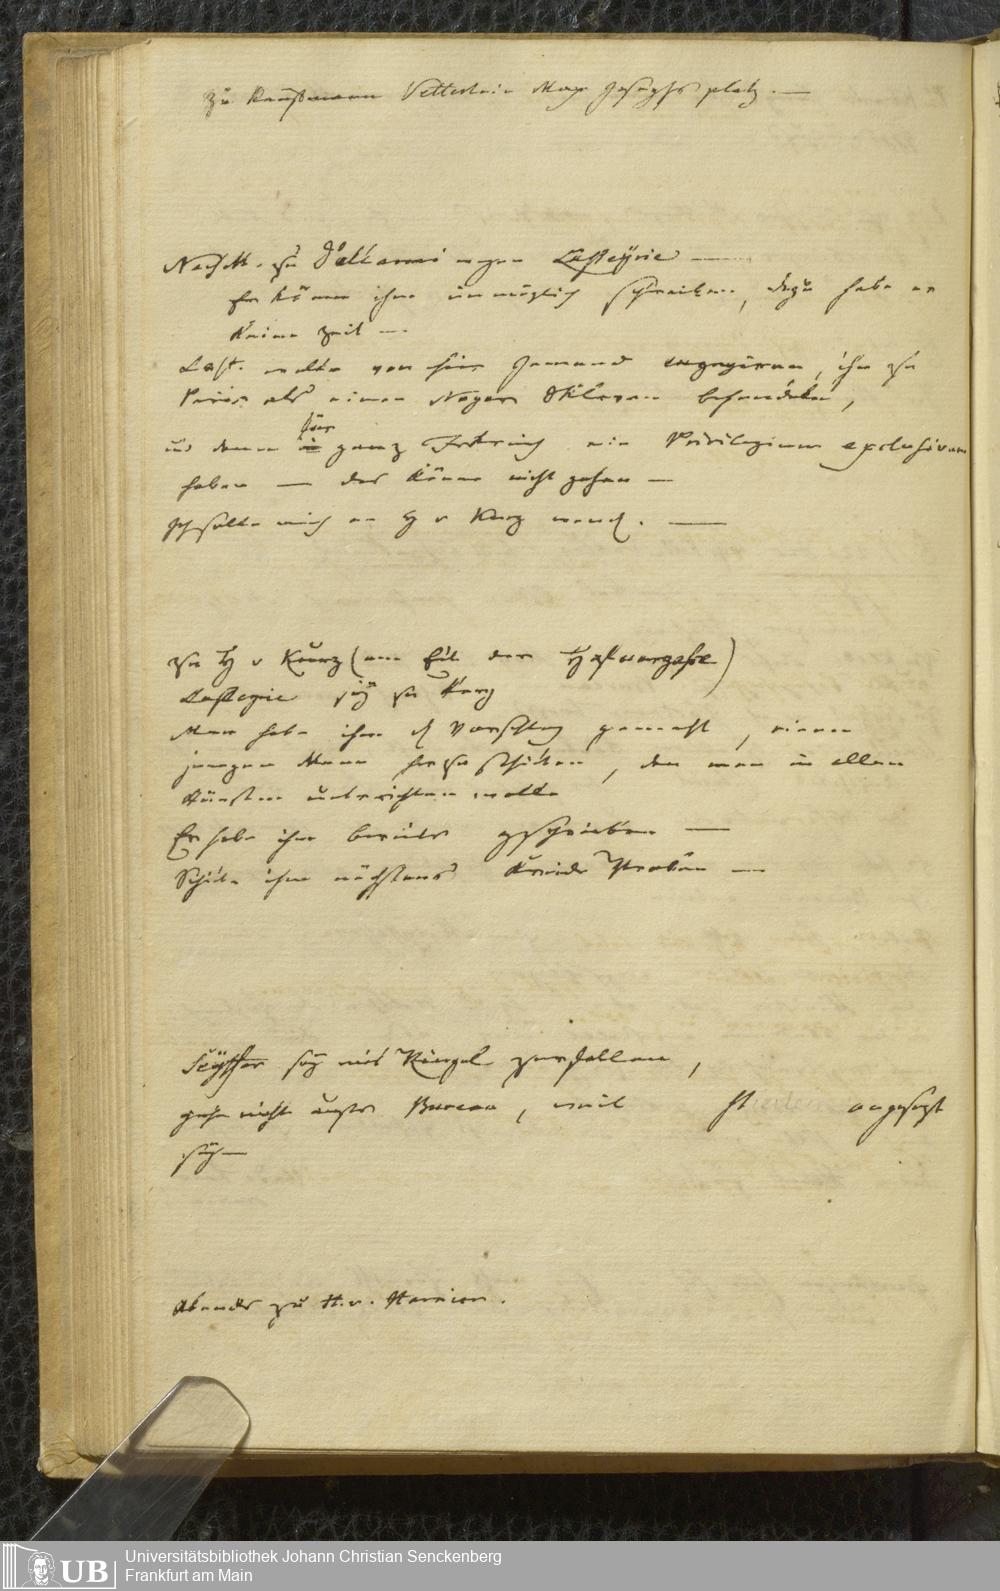 zu Kaufmann Vetterlein Max Josephs platz. —
Nachtt. zu Dallarmi wegen Lasteyrie —
Er könne ihm unmöglich schreiben, dazu habe er
keine zeit —
Last. wollte von hier Jemand engagiren, ihn zu
Paris als einen Neger Sklaven behandeln,
und denn für ganz Frkreich ein Privilegium exclusivum
haben — das könne nicht gehen —
Ich sollte mich an H v Kurz wend. —
zu H v Kurz (am Eck der
Lasteyrie sey zu karg
Man habe ihm d Vorschlag gemacht, einen
jungen Mann herzuschiken, den man in allen
Künsten unterrichten wolle
Er habe ihm bereits geschrieben —
Schike ihm nächstens Kreide Proben —
Seyffer sey mit Ringel zerfallen,
gehe nicht aufs Bureau, weil St angesezt
sey —
Abends zu H. v. Mannion.
Universitätsbibliothek Johann Christian Senckenberg
Frankfurt am Main
UB